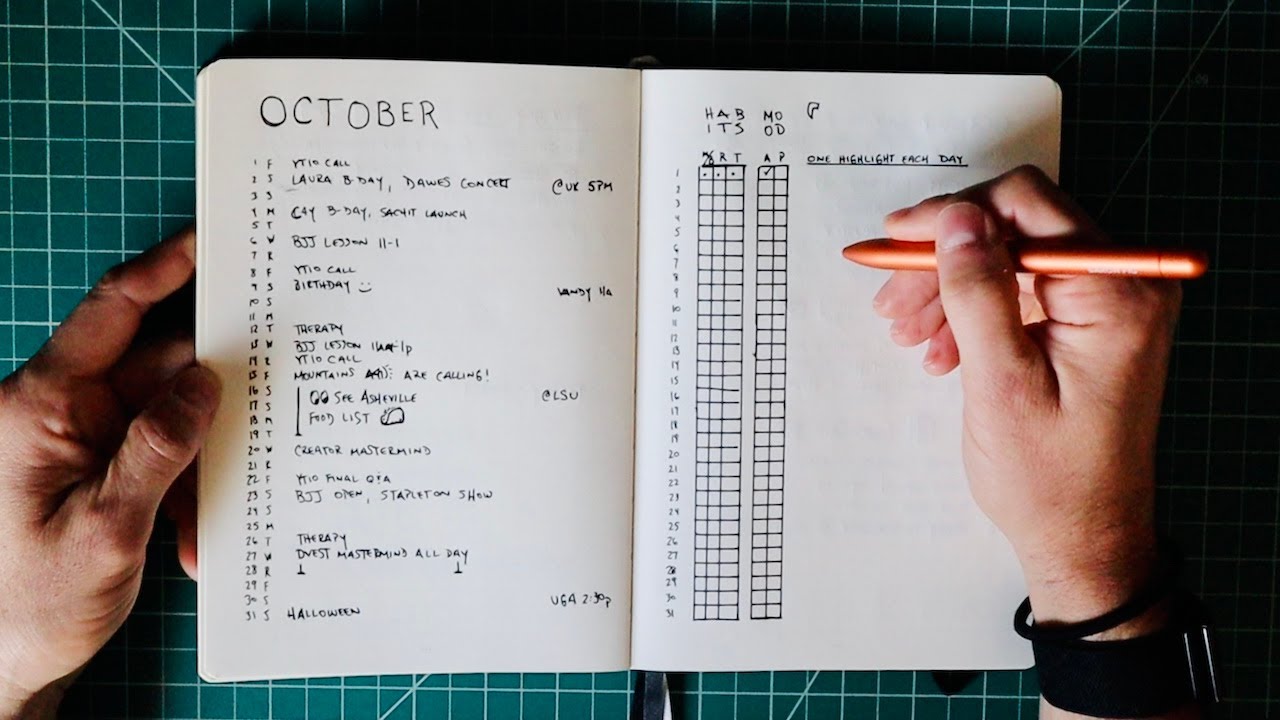 OCTOBER
1 F YT10 CALL
2 S LAURA B-DAY, DAWES CONCERT @UK 5PM
3 S
4 M CAY B-DAY, SACHIT LAUNCH
5 T
6 W BJJ LESSON 11-1
7 R
8 F YT10 CALL
9 S BIRTHDAY
10 S VANDY 11A
11 M
12 T THERAPY
13 W BJJ LESSON 11A-1P
14 R YT10 CALL
15 F MOUNTAINS ARE CALLING!
16 S SEE ASHEVILLE @LSU
17 S
18 M FOOD LIST
19 T
20 W CREATOR MASTERMIND
21 R
22 F YT10 FINAL Q+A
23 S BJJ OPEN, STAPLETON SHOW
24 S
25 M
26 T THERAPY
27 W DVEST MASTERMIND ALL DAY
28 R
29 F
30 S UGA 2:30P
31 S HALLOWEEN
HAB MO
ITS OD
R T A P ONE HIGHLIGHT EACH DAY
1
2
3
4
5
6
7
8
9
10
11
12
13
14
15
16
17
18
19
20
21
22
23
24
25
26
27
28
29
30
31